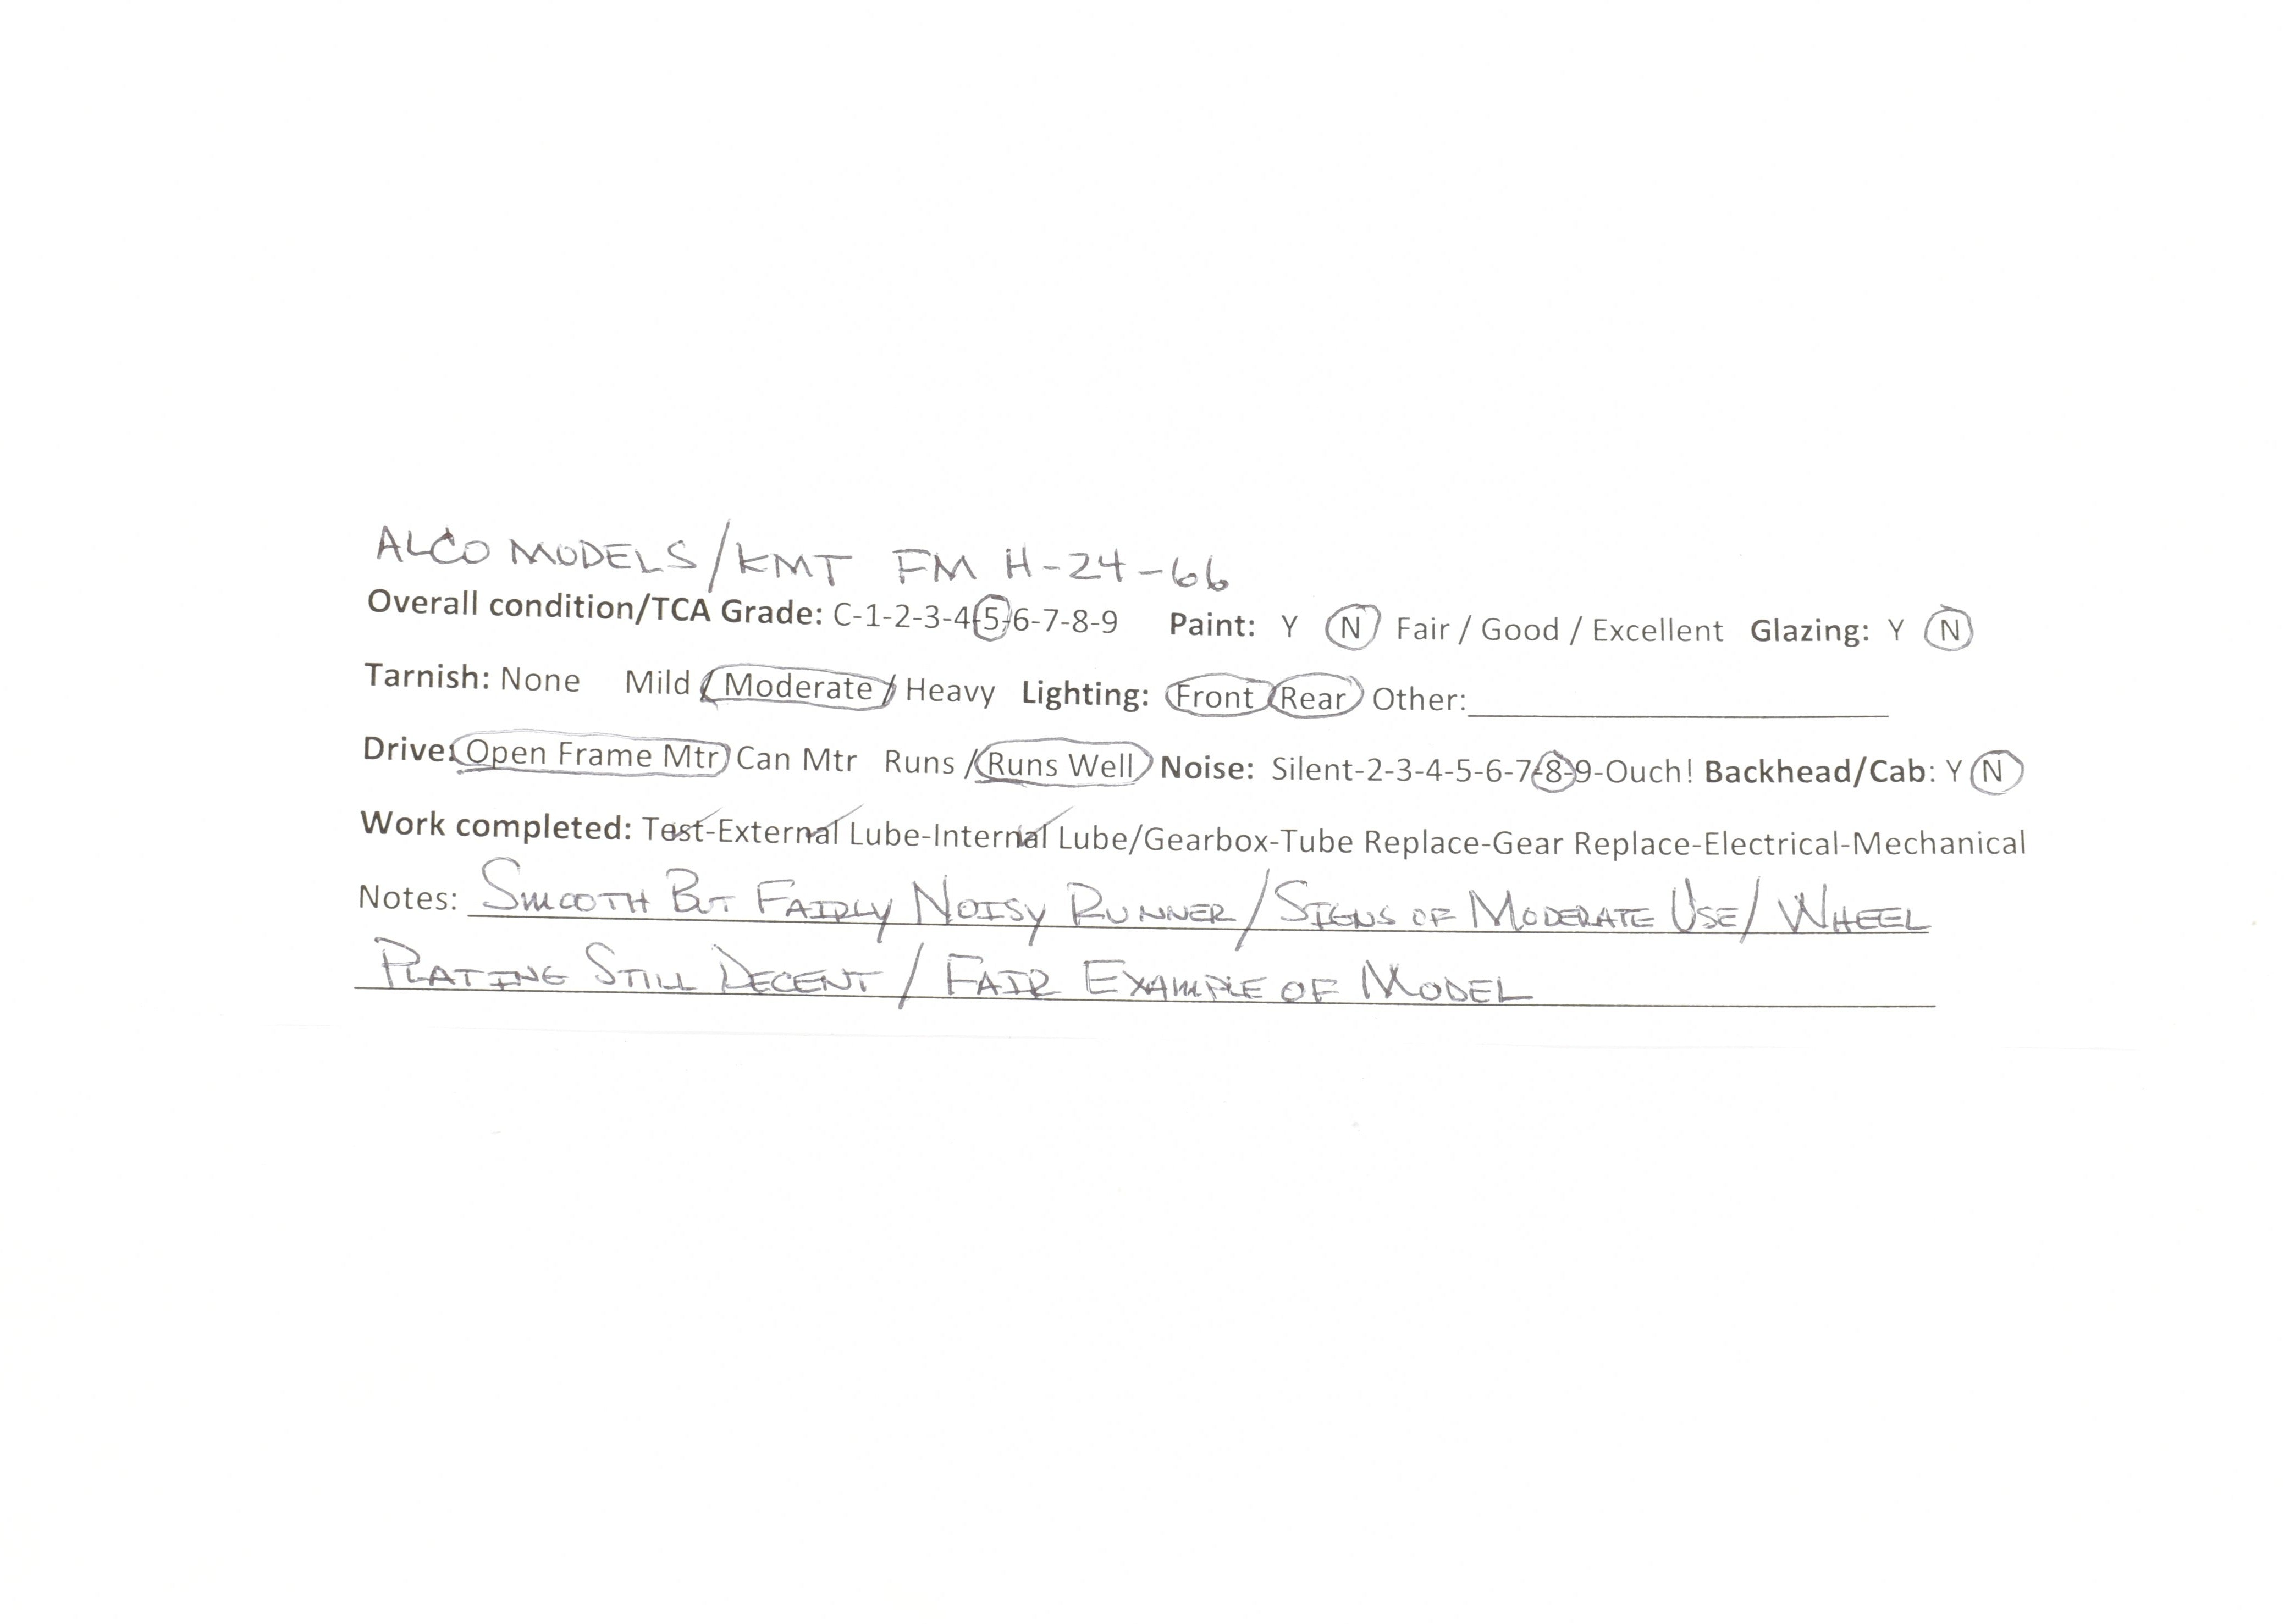 ALCO MODELS/KMT FM H-24-66
Overall condition/TCA Grade: C-1-2-3-4-5-6-7-8-9 Paint: Y N Fair / Good / Excellent Glazing: Y N
Tarnish: None Mild / Moderate / Heavy Lighting: Front Rear Other:
Drive: Open Frame Mtr Can Mtr Runs / Runs Well Noise: Silent-2-3-4-5-6-7-8-9-Ouch! Backhead/Cab: Y N
Work completed: Test-External Lube-Internal Lube/Gearbox-Tube Replace-Gear Replace-Electrical-Mechanical
Notes: SMOOTH BUT FAIRLY NOISY RUNNER/SIGNS OF MODERATE USE/ WHEEL
PLATING STILL DECENT / FAIR EXAMPLE OF MODEL